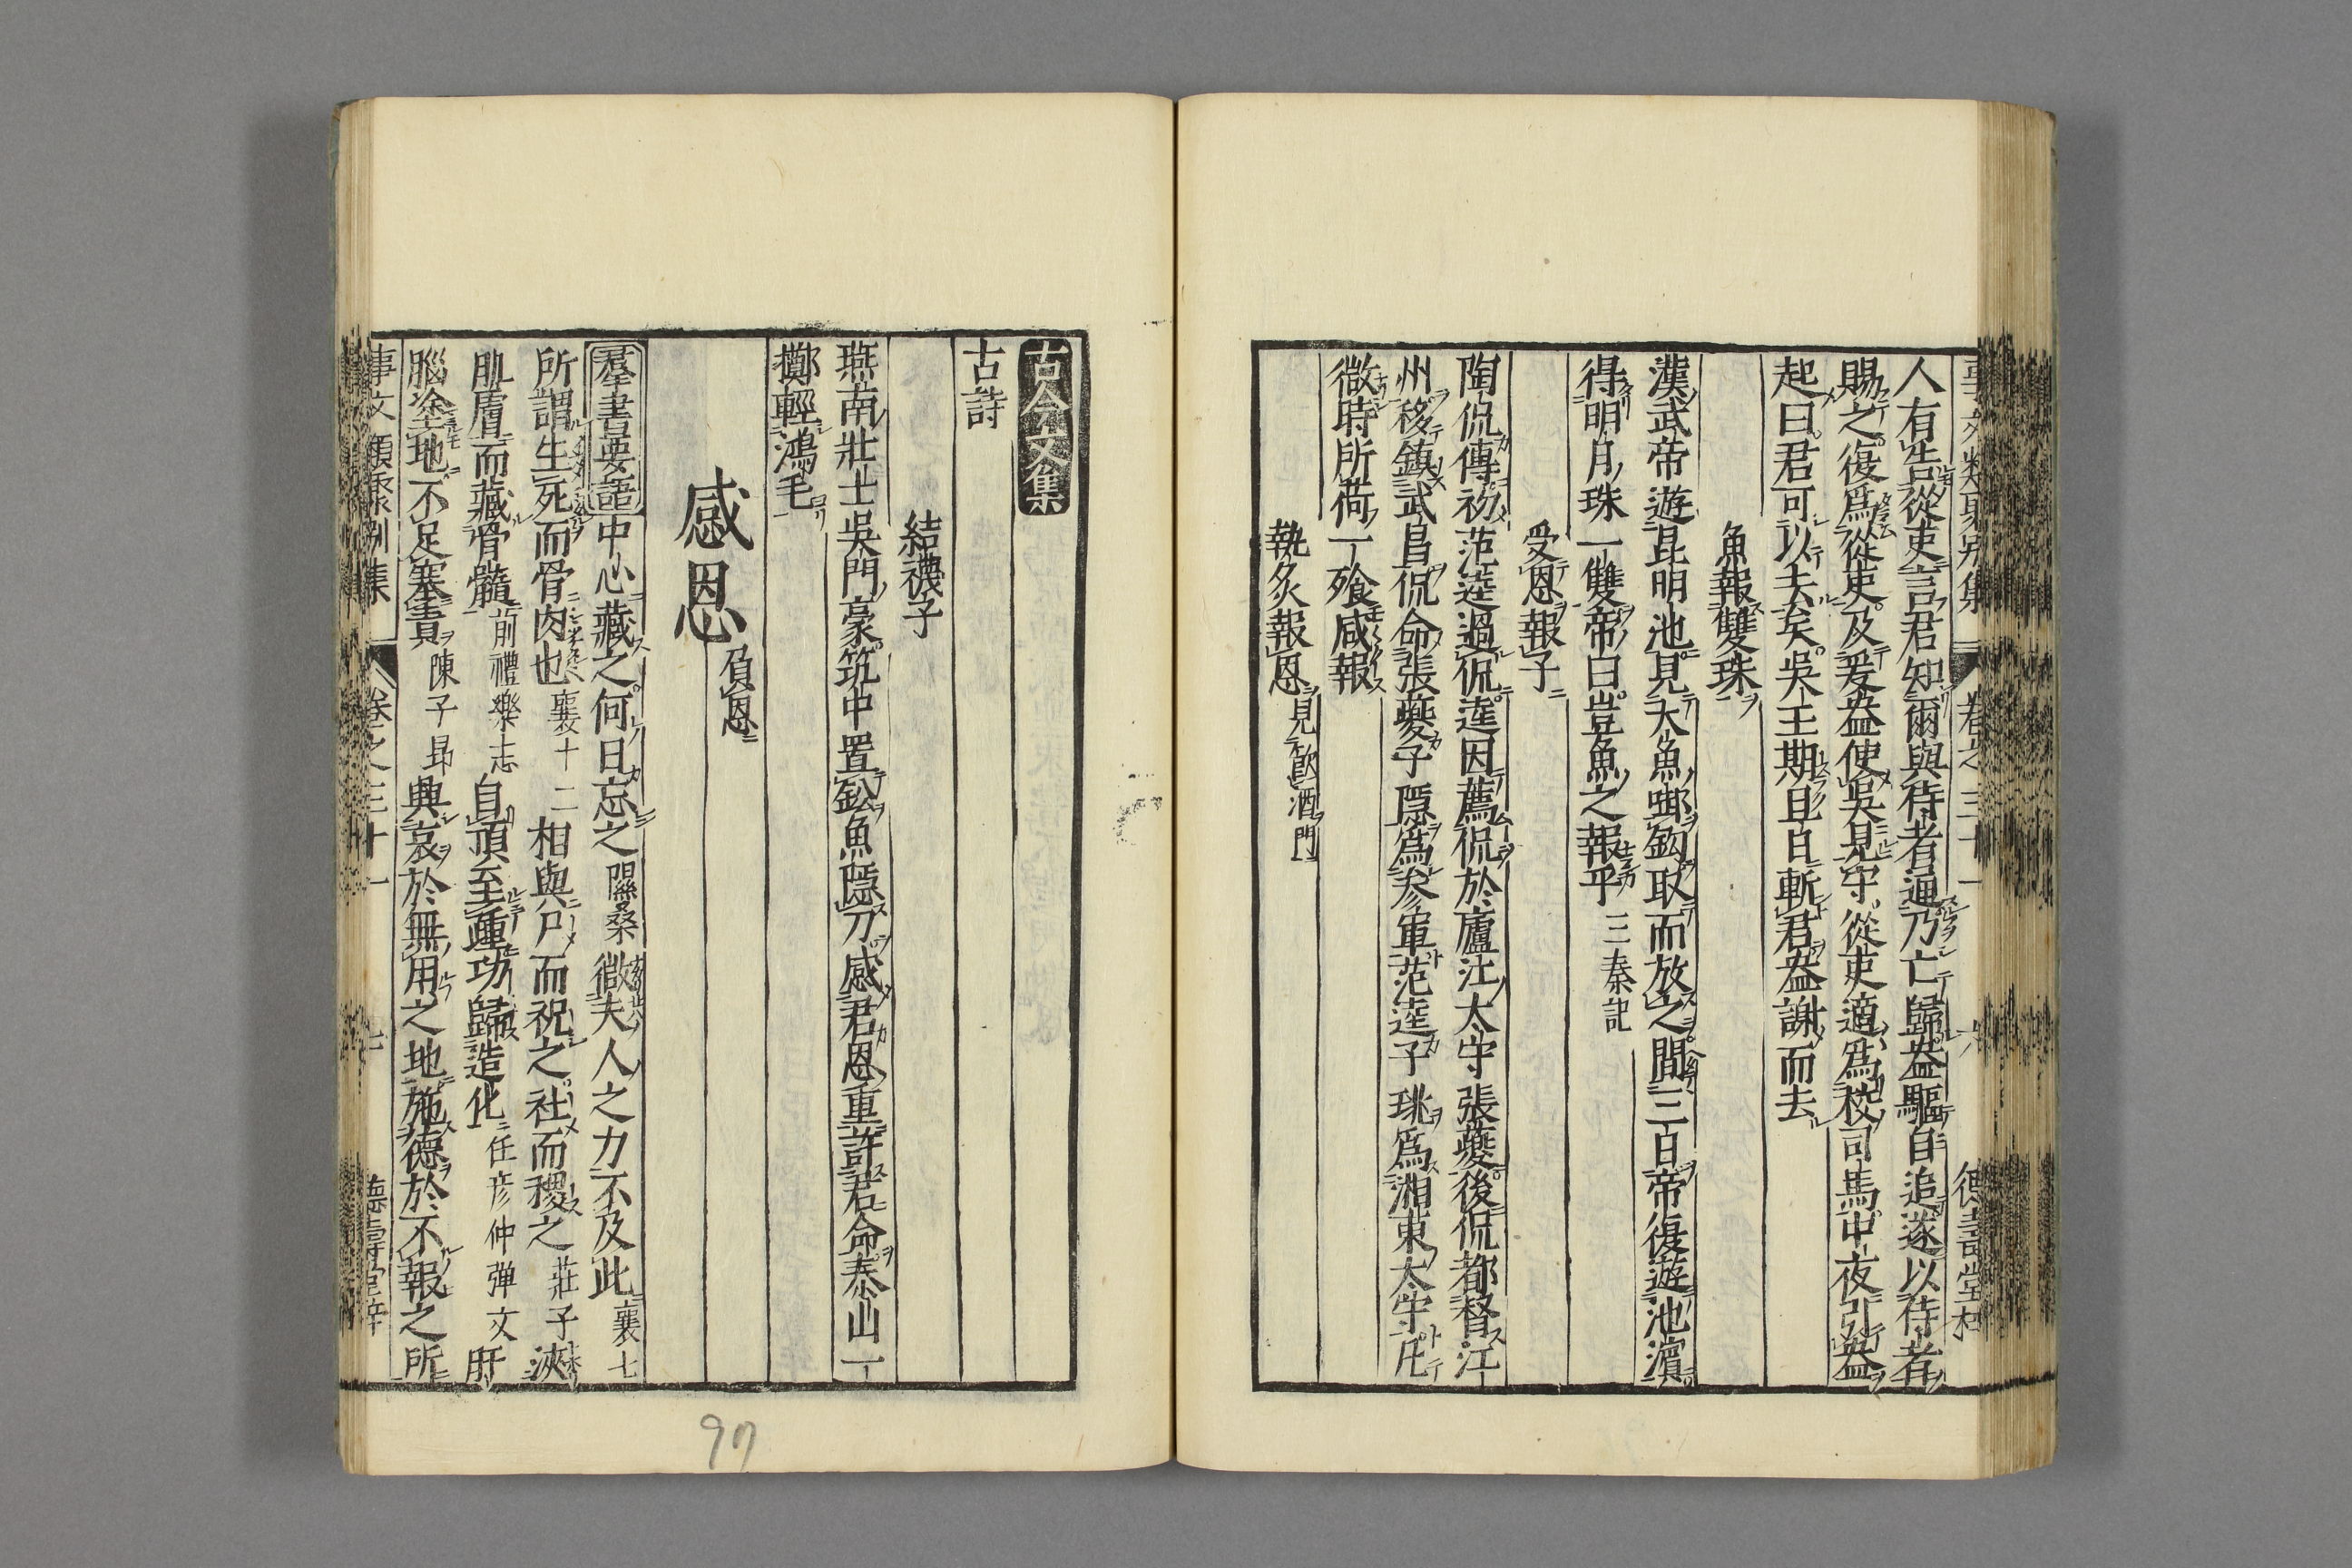 人有告從吏言君知爾與侍者通乃亡歸盎驅自追遂以侍者
賜之復爲從吏及爰盎使吳見守從吏適爲校司馬中夜引盎
起曰君可以去矣吳王期旦日斬君盎謝而去
魚報雙珠
漢武帝遊昆明池見大魚啣鈎取而放之間三日帝復遊池濱
得明月珠一雙帝曰豈魚之報乎三秦記
受恩報子
陶侃傳初范逵過侃逵因薦侃於廬江太守張夔後侃都督江
州移鎮武昌侃命張夔子隱爲參軍范逵子珧爲湘東太守凡
微時所荷一飱咸報
執炙報恩見飲酒門
古今文集
古詩
結襪子
燕南壯士吳門豪筑中置鉛魚隱刀感君恩重許君命泰山一
擲輕鴻毛
感恩負恩
羣書要語中心藏之何日忘之隰桑微夫人之力不及此襄七
所謂生死而骨肉也襄十二相與尸而祝之社而稷之莊子浹
肌膚而藏骨髓前禮樂志自頂至踵功歸造化任彦仲弾文肝
腦塗地不足塞責陳子昻興哀於無用之地施德於不報之所
事文類聚別集 卷之三十一 七